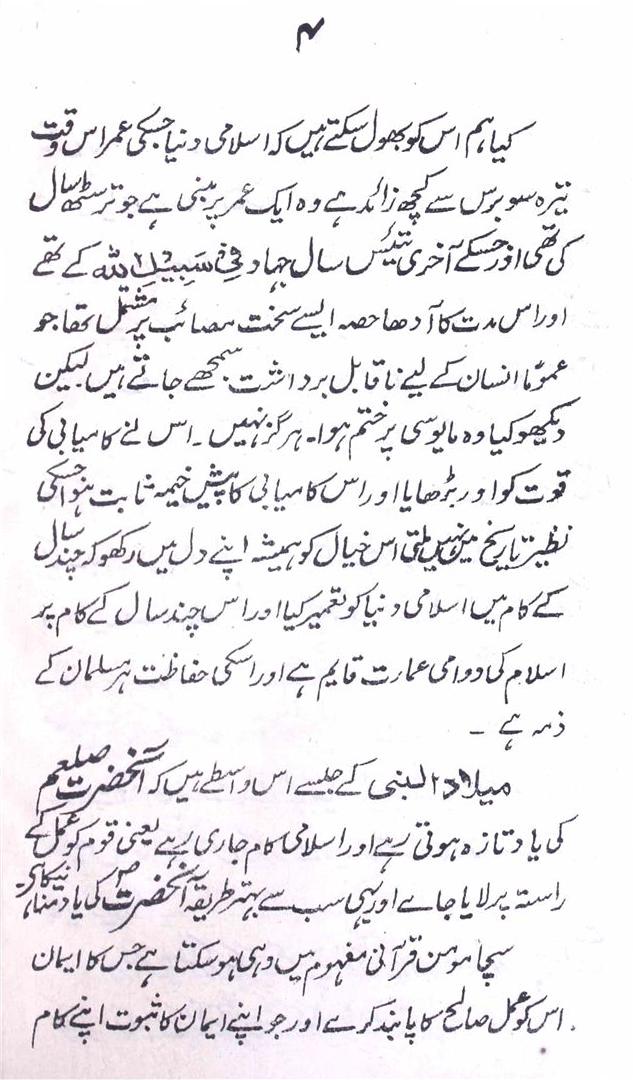 ۴
کیا ہم اس کو بھول سکتے ہیں کہ اسلامی دنیا جسکی عمر اس وقت
تیرہ سو برس سے کچھ زائد ہے وہ ایک عمر پر مبنی ہے جو ترسٹھ سال
کی تھی اور جسکے آخری تیئس سال جہاد فِیْ سَبِیْلِ اللہ کے تھے
اور اس مدت کا آدھا حصہ ایسے سخت مصائب پر مشتمل تھا جو
عموماً انسان کے لیے ناقابل برداشت سمجھے جاتے ہیں لیکن
دیکھو کیا وہ مایوسی پر ختم ہوا۔ ہرگز نہیں۔ اس نے کامیابی کی
قوت کو اور بڑھایا اور اس کامیابی کا پیش خیمہ ثابت ہوا جسکی
نظیر تاریخ میں نہیں ملتی اس خیال کو ہمیشہ اپنے دل میں رکھو کہ چند سال
کے کام میں اسلامی دنیا کو تعمیر کیا اور اس چند سال کے کام پر
اسلام کی دوامی عمارت قایم ہے اور اسکی حفاظت ہر مسلمان کے
ذمہ ہے ۔
میلاد النبی کے جلسے اس واسطے ہیں کہ آنحضرت صلعم
کی یاد تازہ ہوتی رہے اور اسلامی کام جاری رہے یعنی قوم کو عمل کے
راستہ پر لایا جاے اور یہی سب سے بہتر طریقہ آنحضرت ؐ کی یاد منانیکا ہے۔
سچا مومن قرآنی مفہوم میں وہی ہو سکتا ہے جس کا ایمان
اس کو عمل صالح کا پابند کرے اور جو اپنے ایمان کا ثبوت اپنے کام